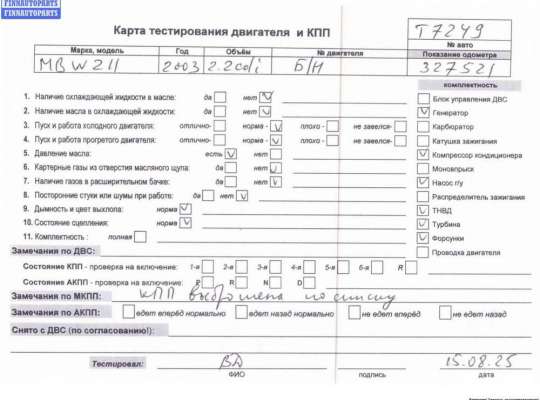 FINNAUTOPARTS
FINNAUTOPARTS
Карта тестирования двигателя и КПП
T7249
№ авто
Марка, модель Год Объём № двигателя Показание одометра
MB W211 2003 2.2cdi Б/Н 327521
комплектность
1. Наличие охлаждающей жидкости в масле: да нет V
2. Наличие масла в охлаждающей жидкости: да нет V
3. Пуск и работа холодного двигателя: отлично- норма - V плохо - не завелся-
4. Пуск и работа прогретого двигателя: отлично- норма - V плохо - не завелся-
5. Давление масла: есть V нет
6. Картерные газы из отверстия масляного щупа: да нет V
7. Наличие газов в расширительном бачке: да нет V
8. Посторонние стуки или шумы при работе: да нет V
9. Дымность и цвет выхлопа: норма V
10. Состояние сцепления: норма V
11. Комплектность : полная
Блок управления ДВС
V Генератор
Карбюратор
Катушка зажигания
V Компрессор кондиционера
Моновпрыск
V Насос г/у
Распределитель зажигания
V ТНВД
V Турбина
V Форсунки
Проводка двигателя
Замечания по ДВС:
Состояние КПП - проверка на включение: 1-я 2-я 3-я 4-я 5-я 6-я R
Состояние АКПП - проверка на включение: P R N D
Замечания по МКПП: КПП выброшена по списку
Замечания по АКПП: едет вперёд нормально едет назад нормально не едет вперёд не едет назад
Снято с ДВС (по согласованию!):
Тестировал: ВД 15.08.25
ФИО подпись дата